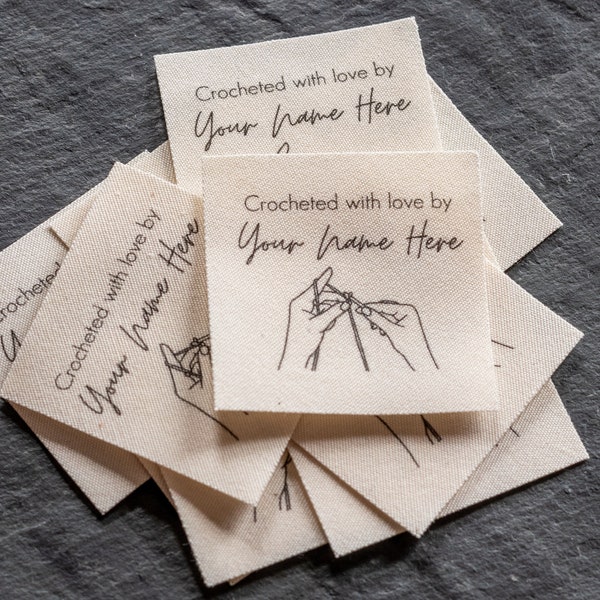 Crocheted with love by
Your Name Here
Crocheted with love by
Your Name Here
Crocheted with love by
Your Name Here
Crochete